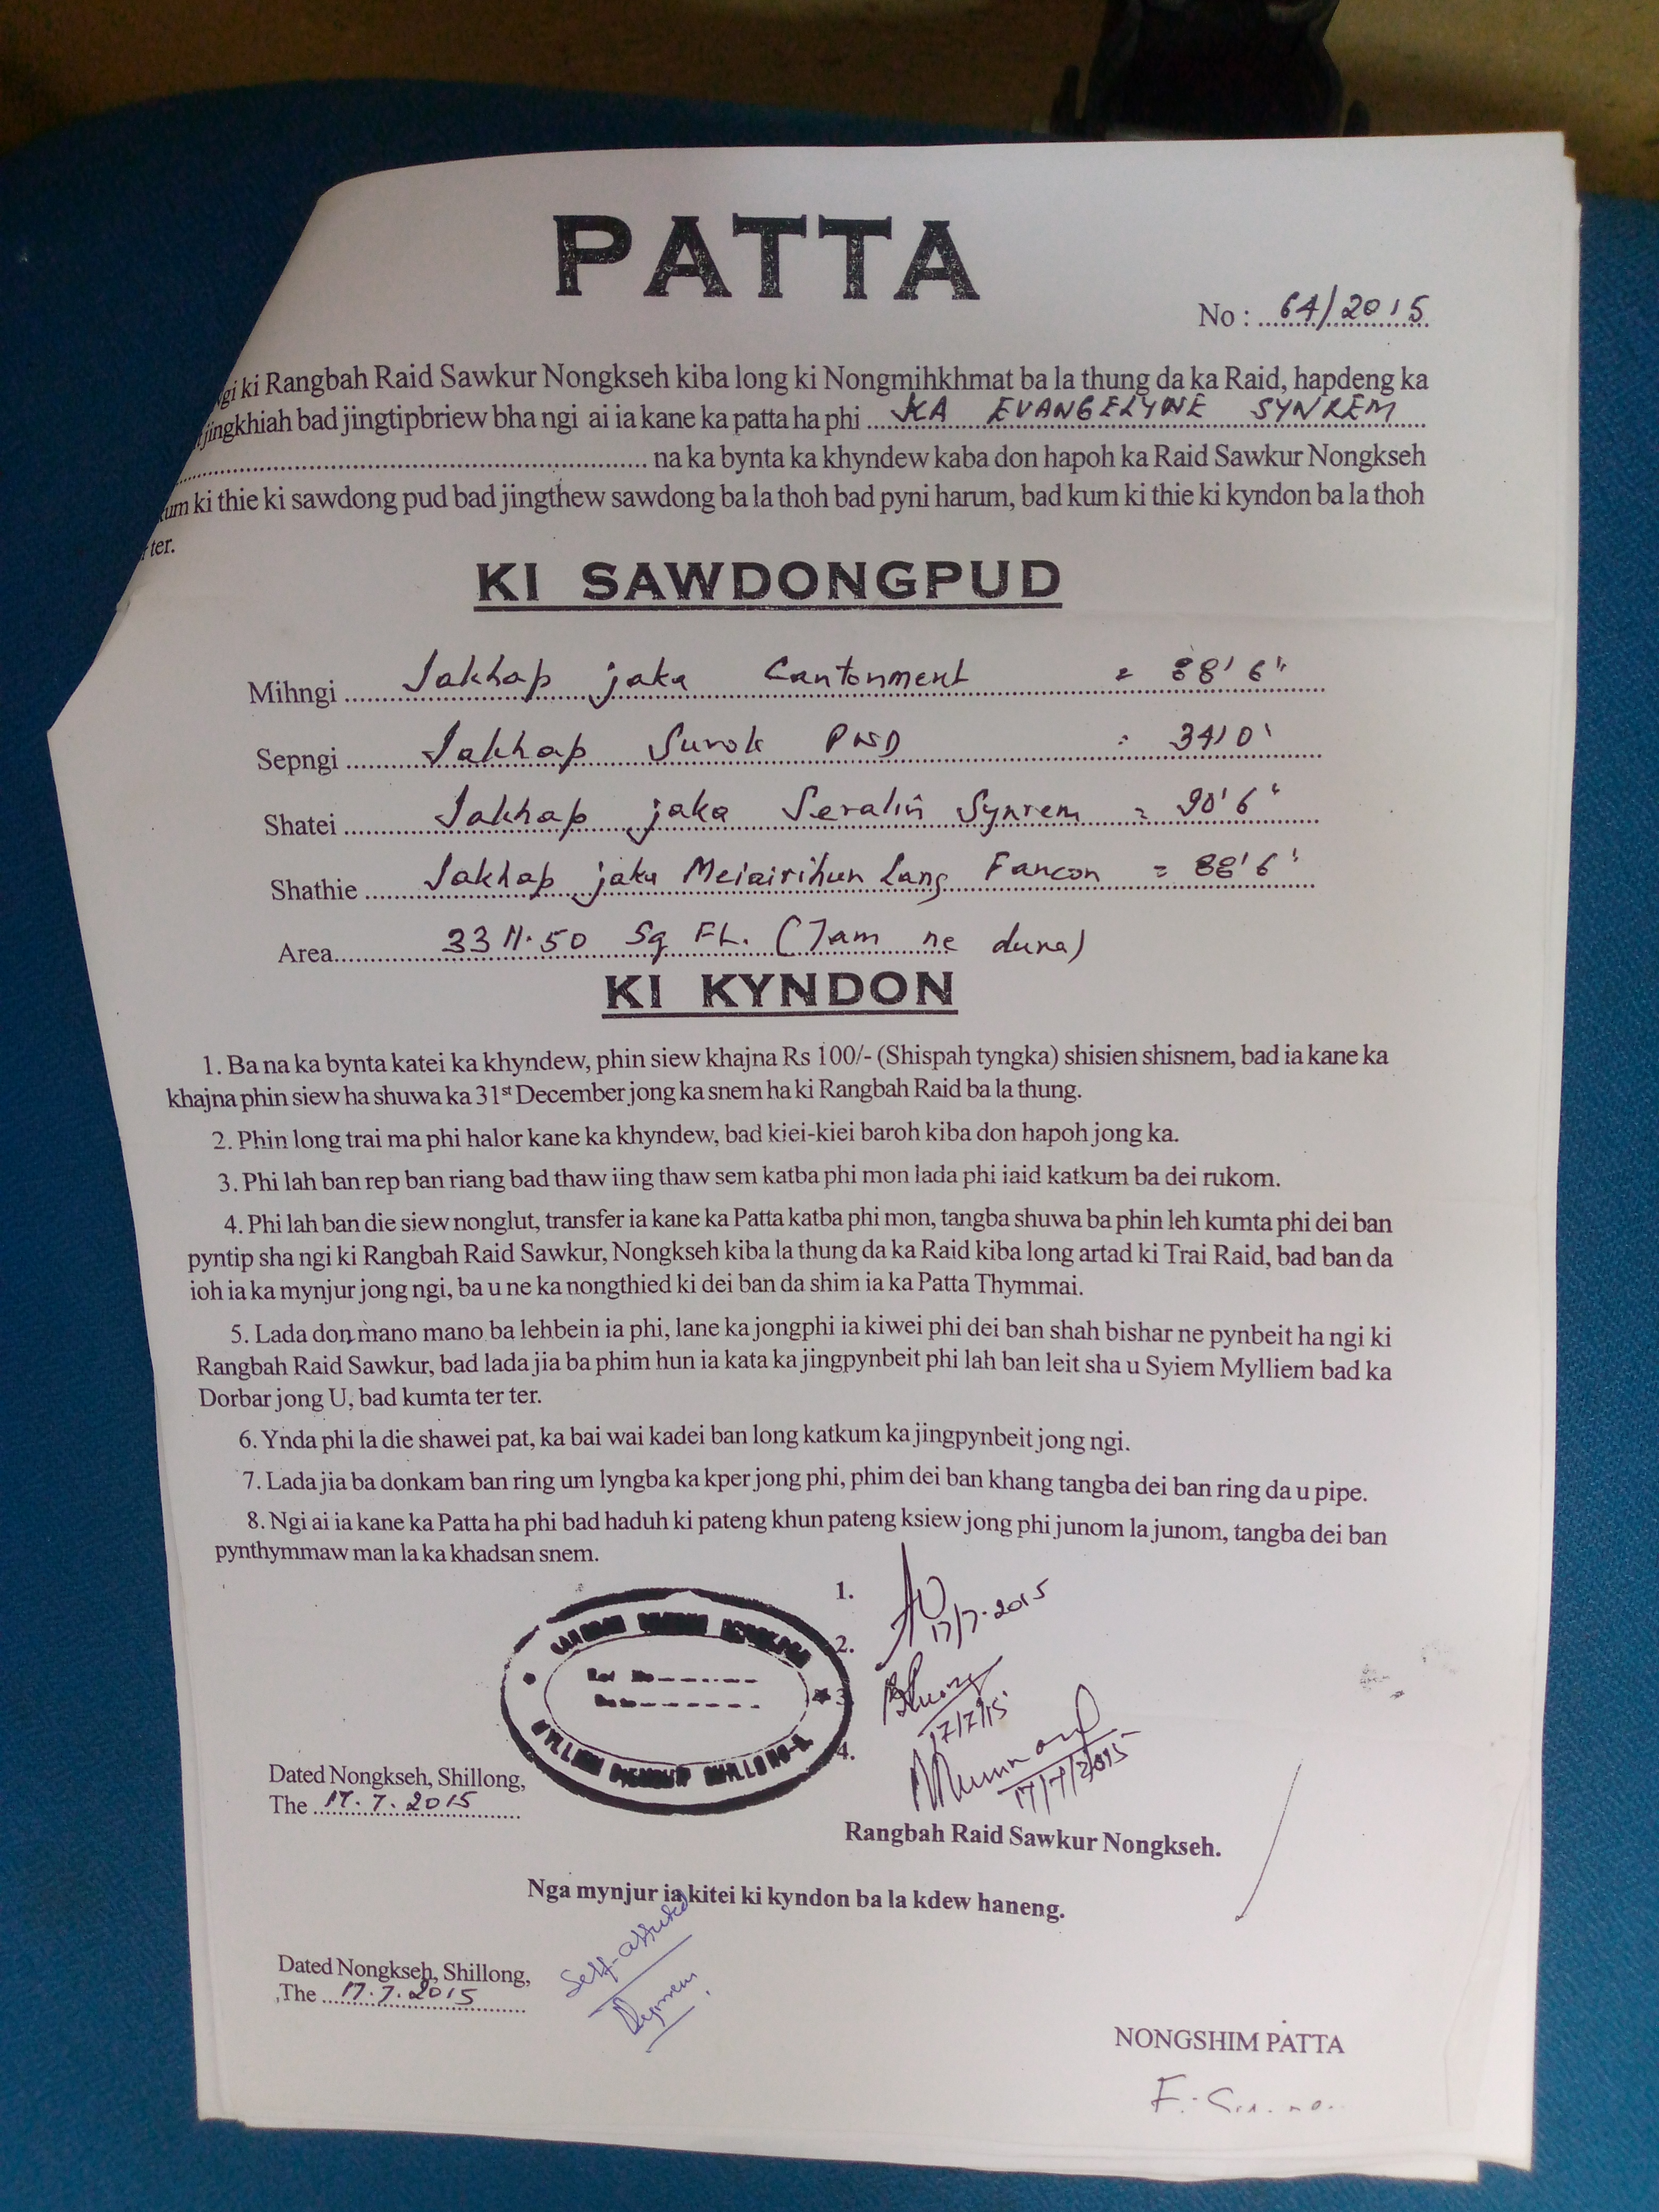 PATTA
No : 64/2015
ngi ki Rangbah Raid Sawkur Nongkseh kiba long ki Nongmihkhmat ba la thung da ka Raid, hapdeng ka
jingkhiah bad jingtipbriew bha ngi ai ia kane ka patta ha phi KA EVANGELYNE SYNREM
na ka bynta ka khyndew kaba don hapoh ka Raid Sawkur Nongkseh
kum ki thie ki sawdong pud bad jingthew sawdong ba la thoh bad pyni harum, bad kum ki thie ki kyndon ba la thoh
ter.
KI SAWDONGPUD
Mihngi Jakhap jaka Cantonment = 88' 6"
Sepngi Jakhap Surok PWD : 34' 0'
Shatei Jakhap jaka Seralin Synrem = 90' 6"
Shathie Jakhap jaka Lang = 88' 6'
Area 3311.50 Sq Ft. (Tam ne duna)
KI KYNDON
1. Ba na ka bynta katei ka khyndew, phin siew khajna Rs 100/- (Shispah tyngka) shisien shisnem, bad ia kane ka
khajna phin siew ha shuwa ka 31st December jong ka snem ha ki Rangbah Raid ba la thung.
2. Phin long trai ma phi halor kane ka khyndew, bad kiei-kiei baroh kiba don hapoh jong ka.
3. Phi lah ban rep ban riang bad thaw iing thaw sem katba phi mon lada phi iaid katkum ba dei rukom.
4. Phi lah ban die siew nonglut, transfer ia kane ka Patta katba phi mon, tangba shuwa ba phin leh kumta phi dei ban
pyntip sha ngi ki Rangbah Raid Sawkur, Nongkseh kiba la thung da ka Raid kiba long artad ki Trai Raid, bad ban da
ioh ia ka mynjur jong ngi, ba u ne ka nongthied ki dei ban da shim ia ka Patta Thymmai.
5. Lada don mano mano ba lehbein ia phi, lane ka jongphi ia kiwei phi dei ban shah bishar ne pynbeit ha ngi ki
Rangbah Raid Sawkur, bad lada jia ba phim hun ia kata ka jingpynbeit phi lah ban leit sha u Syiem Mylliem bad ka
Dorbar jong U, bad kumta ter ter.
6. Ynda phi la die shawei pat, ka bai wai kadei ban long katkum ka jingpynbeit jong ngi.
7. Lada jia ba donkam ban ring um lyngba ka kper jong phi, phim dei ban khang tangba dei ban ring da u pipe.
8. Ngi ai ia kane ka Patta ha phi bad haduh ki pateng khun pateng ksiew jong phi junom la junom, tangba dei ban
pynthymmaw man la ka khadsan snem.
1. 17/7.2015
2. 17/7/15
3.
4. 17/7/2015
Dated Nongkseh, Shillong,
The 17.7.2015
Rangbah Raid Sawkur Nongkseh.
Nga mynjur ia kitei ki kyndon ba la kdew haneng.
Self-attested
Dated Nongkseh, Shillong,
The 17.7.2015
NONGSHIM PATTA